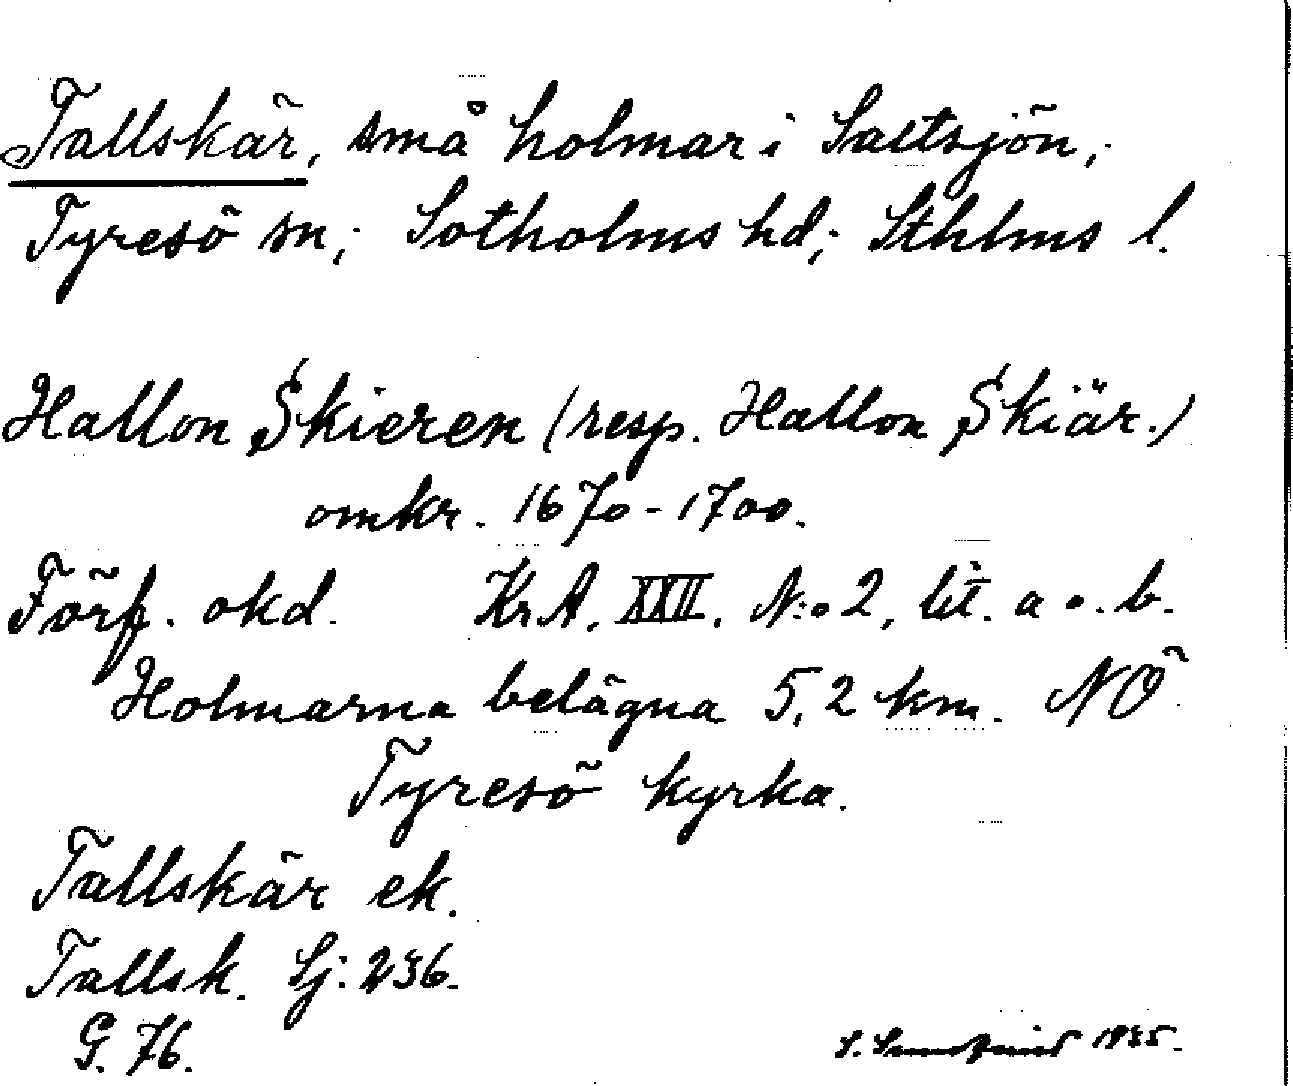 Tallskär, små holmar i Saltsjön,
Tyresö sn, Sotholms hd, Sthlms l.
Hallon Skieren (resp. Hallon Skiär.)
omkr. 1670-1700.
Förf. okd. Kr A. XXII. N:o 2, lit. a o. b.
Holmarna belägna 5,2 km. NÖ
Tyresö kyrka.
Tallskär ek.
Tallsk. Sj: 236.
G. 76.
S. 1935.